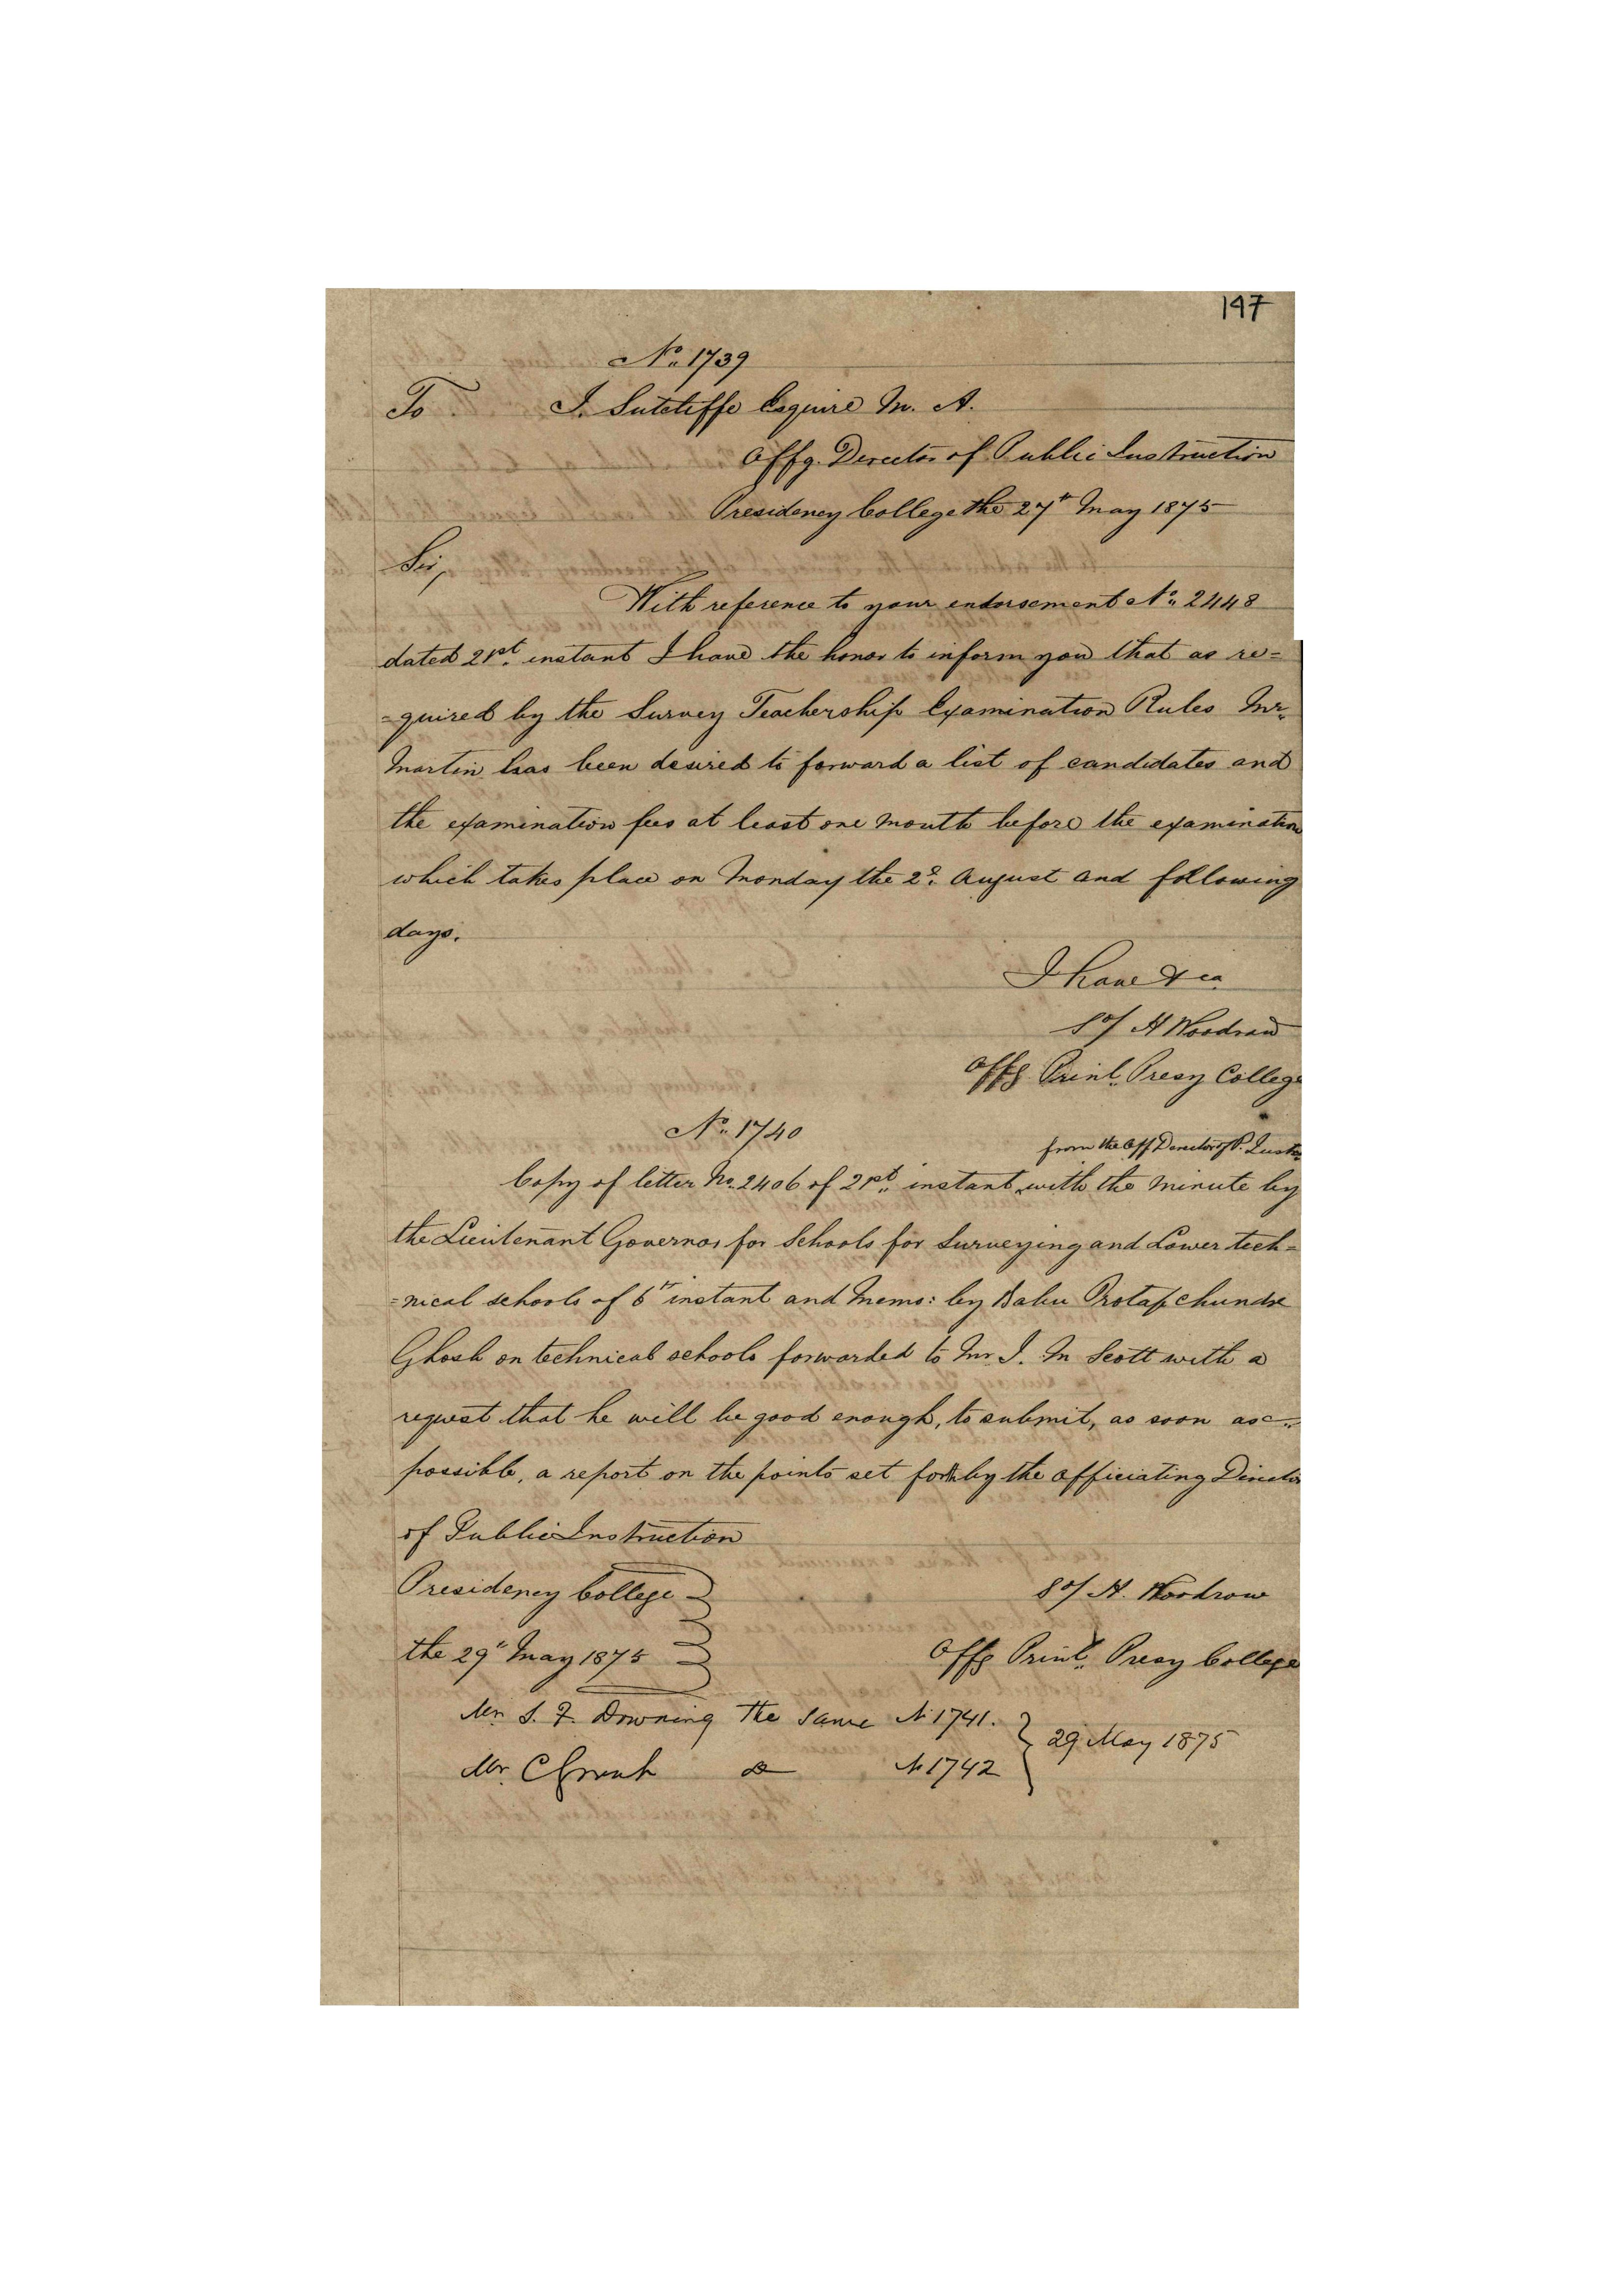 147
No. 1739
To J. Sutcliffe Esquire M. A.
Offg. Director of Public Instruction
Presidency College the 27th May 1875
Sir,
With reference to your endorsement No. 2448
dated 21st. instant I have the honor to inform you that as re=
=quired by the Survey Teachership Examination Rules Mr.
Martin has been desired to forward a list of candidates and
the examination fees at least one month before the examination
which takes place on Monday the 2d. August and following
days.
I have &ca
Sd/ H Woodrow
Offg Prinl. Presy College
No. 1740
from the Off Director of P. Instn
Copy of letter No. 2406 of 21st. instant with the minute by
the Lieutenant Governor for Schools for Surveying and Lower tech=
=nical schools of 6th instant and Memo: by Babu Protap Chundra
Ghosh on technical schools forwarded to Mr J. M Scott with a
request that he will be good enough, to submit, as soon as
possible, a report on the points set forth by the officiating Director
of Public Instruction
Presidency College
the 29th May 1875
Sd/ H. Woodrow
Offg Prinl. Presy College
Mr. S. F. Downing The same No 1741.
Mr. Do No 1742
29 May 1875